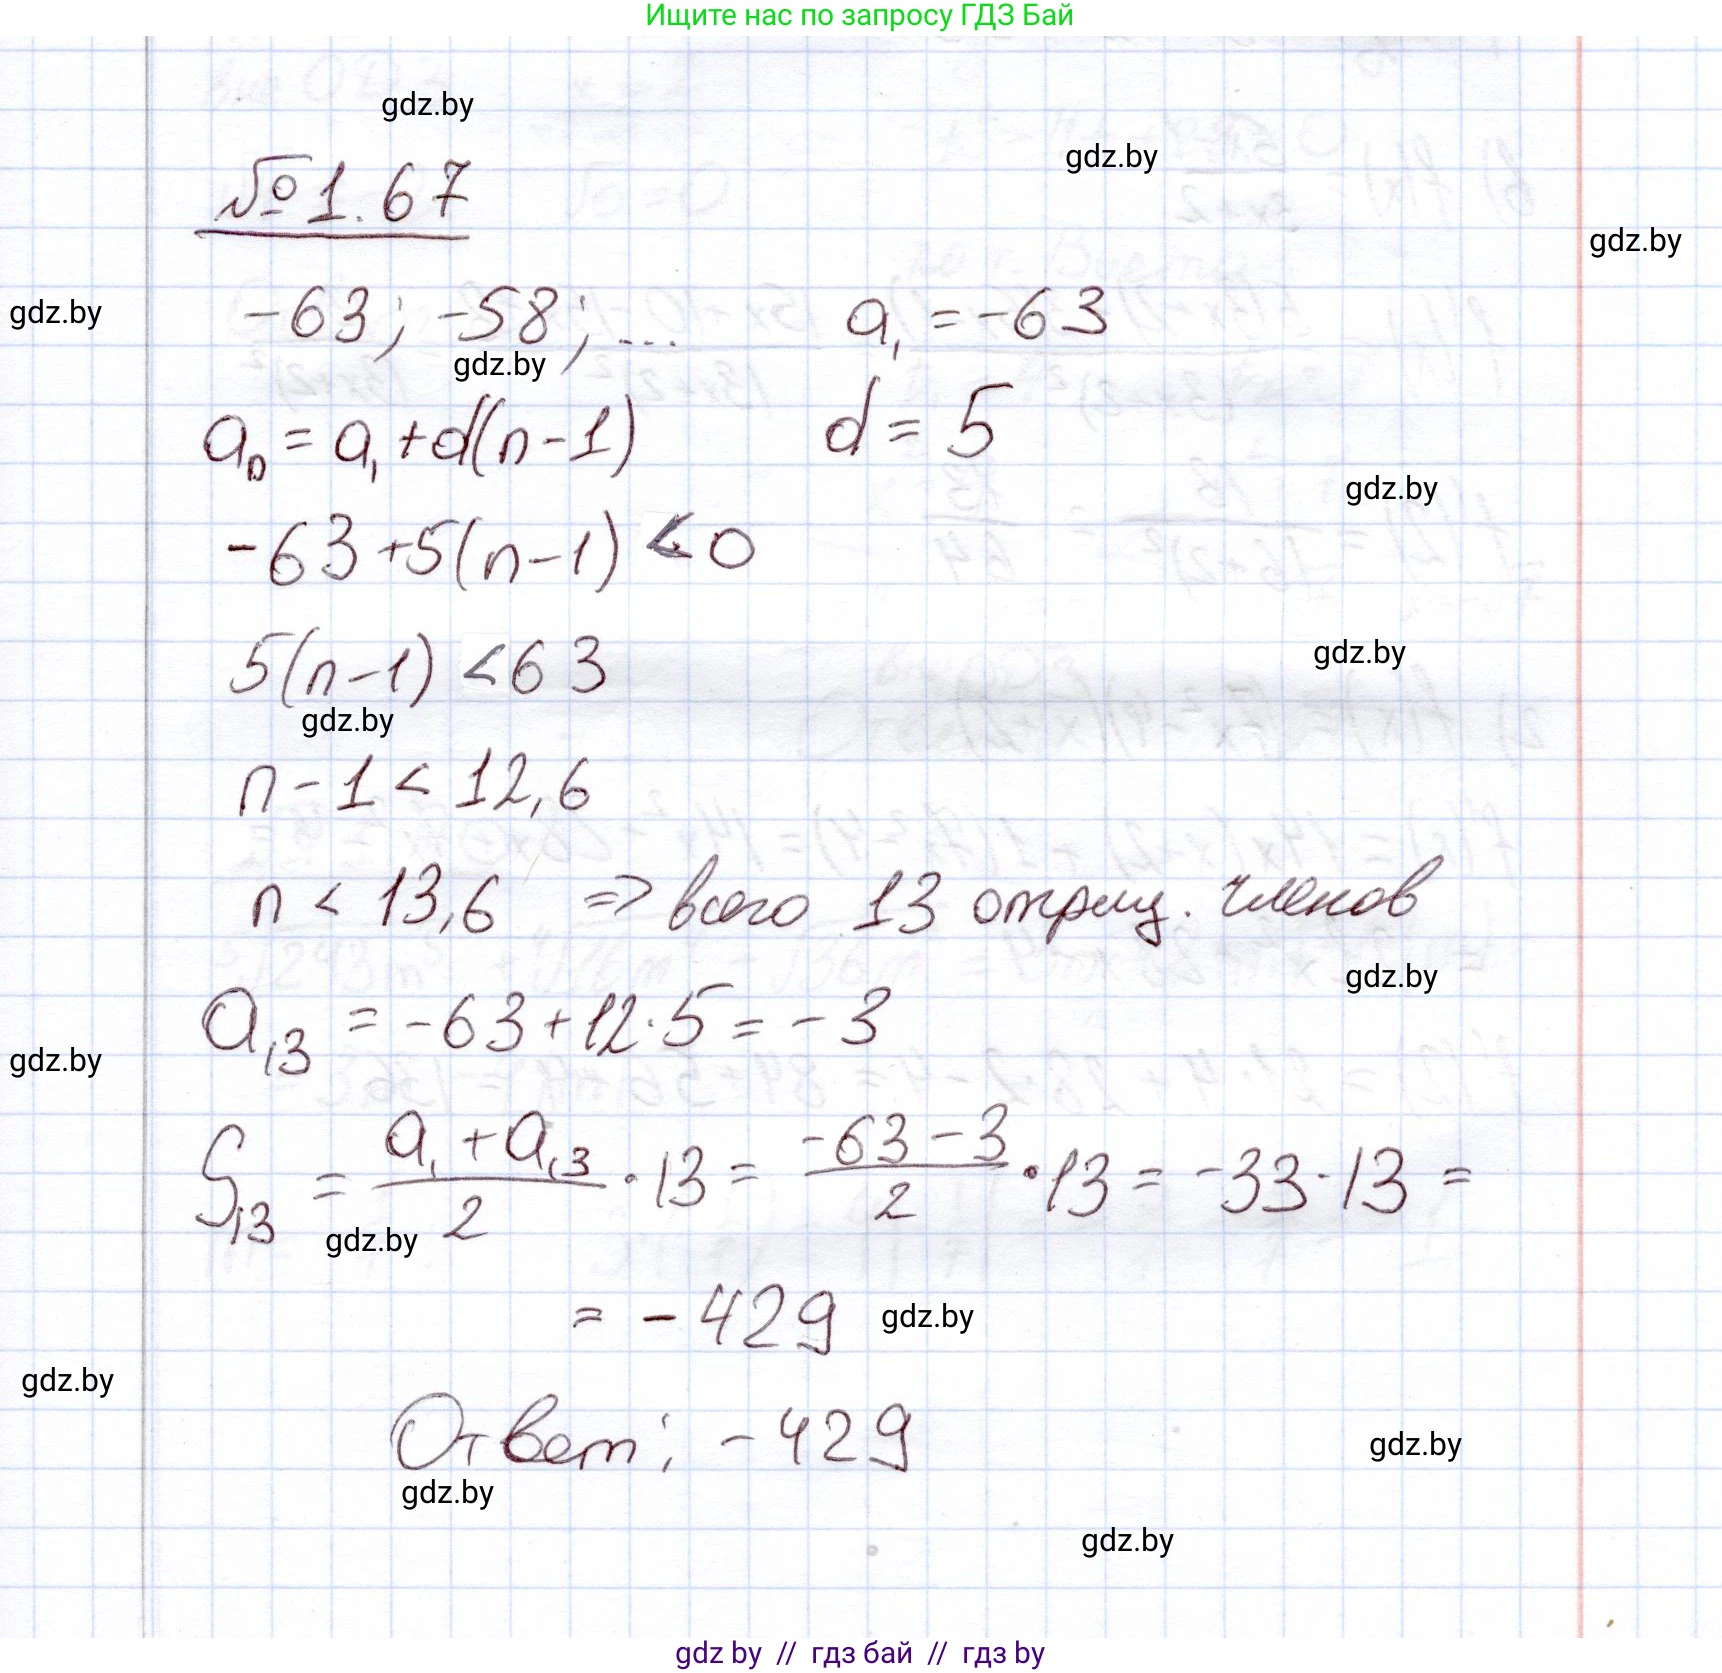 Ищите нас по запросу ГДЗ Бай
gdz.by
gdz.by
№1.67
gdz.by
gdz.by
-63; -58; ... a₁ = -63
gdz.by
aₙ = a₁ + d(n-1) d = 5
gdz.by
-63+5(n-1) < 0
5(n-1) < 63
gdz.by
gdz.by
n - 1 < 12,6
n < 13,6 => всего 13 отриц. членов
gdz.by
a₁₃ = -63+12·5 = -3
gdz.by
S₁₃ = (a₁ + a₁₃)/2 · 13 = (-63-3)/2 · 13 = -33·13 =
gdz.by
= -429
gdz.by
gdz.by
Ответ: -429
gdz.by
gdz.by
gdz.by
gdz by // гдз бай // гдз by